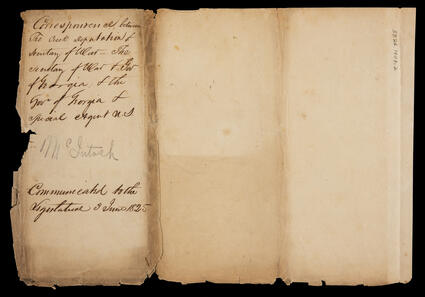 Correspondence between
The Creek deputation &
Secretary of War – The
Secretary of War & Gov
of Georgia, & the
Gov of Georgia &
Special Agent U.S.
McIntosh
Communicated to the
Legislature 3 June 1825